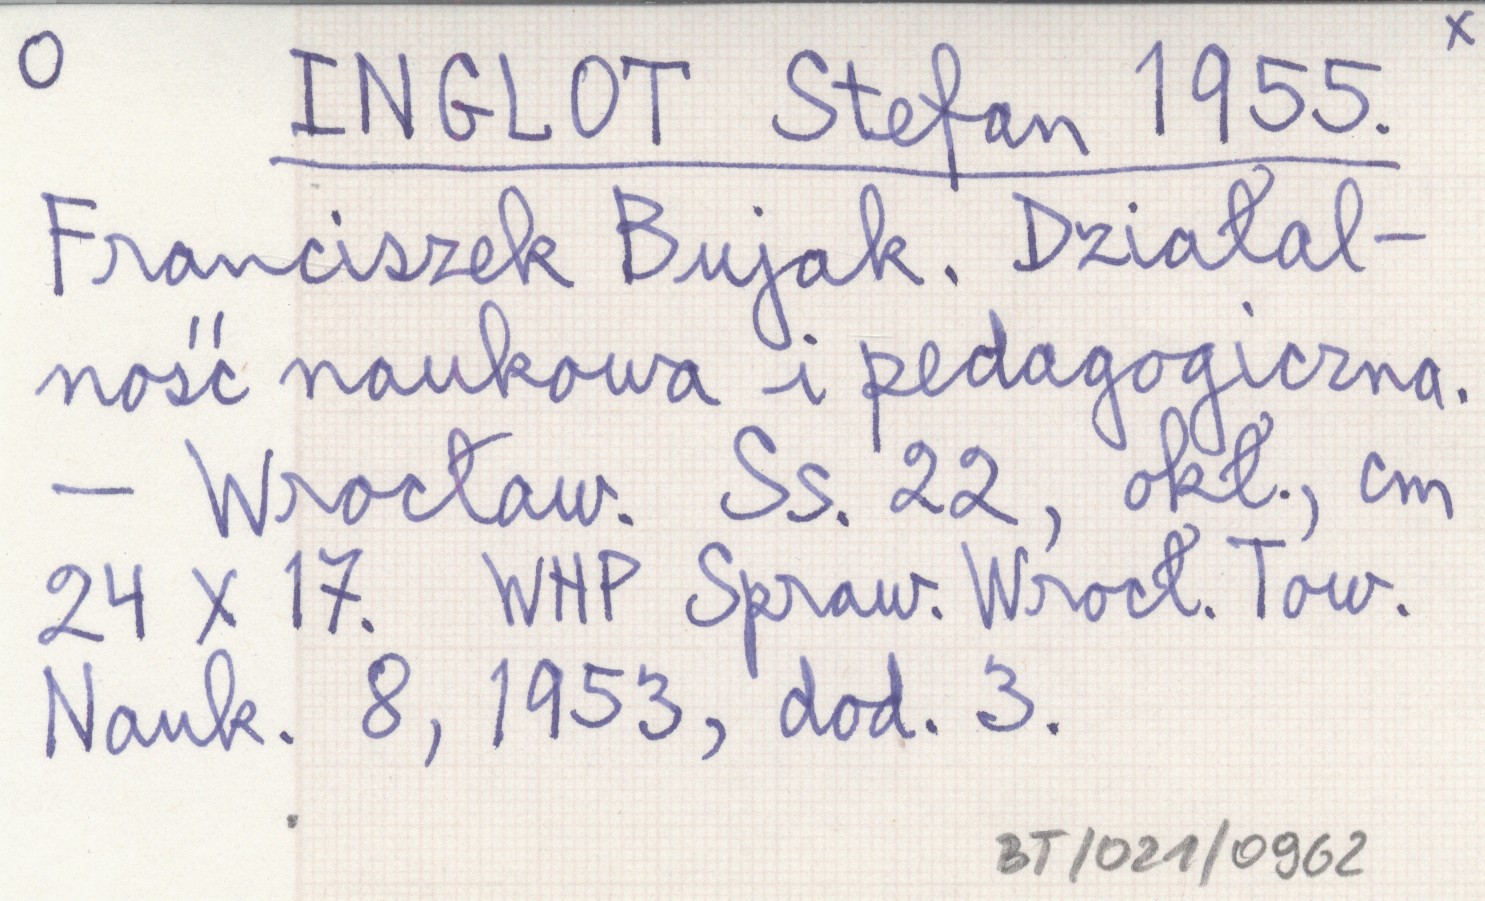 O INGLOT Stefan 1955. x
Franciszek Bujak. Działal-
ność naukowa i pedagogiczna.
— Wrocław. Ss. 22, okł., cm
24 x 17. WHP Spraw. Wrocł. Tow.
Nauk. 8, 1953, dod. 3.
BT/021/0962